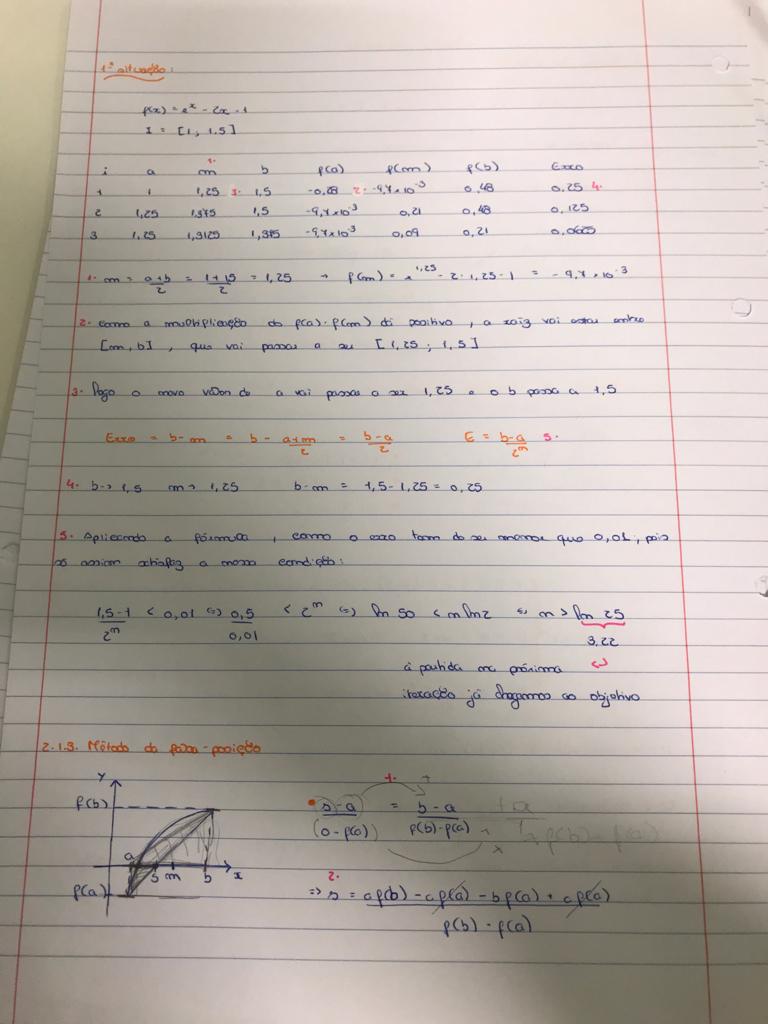 1ª situação:
f(x) = e^x - 2x - 1
I = [1, 1.5]
1.
i a m b f(a) f(m) f(b) Erro
1 1 1,25 3. 1,5 -0,28 2. -9,7×10^-3 0,48 0,25 4.
2 1,25 1,375 1,5 -9,7×10^-3 0,21 0,48 0,125
3 1,25 1,3125 1,375 -9,7×10^-3 0,09 0,21 0,0625
1. m = (a+b)/2 = (1+1,5)/2 = 1,25 → f(m) = e^1,25 - 2·1,25 - 1 = -9,7×10^-3
2. como a multiplicação do f(a)·f(m) dá positivo, a raiz vai estar entre
[m, b], que vai passar a ser [1,25 ; 1,5]
3. logo o novo valor de a vai passar a ser 1,25 e o b passa a 1,5
Erro = b-m = b - (a+m)/2 = (b-a)/2 E = (b-a)/2^m 5.
4. b → 1,5 m → 1,25 b-m = 1,5-1,25 = 0,25
5. Aplicando a fórmula, como o erro tem de ser menor que 0,01, pois
só assim satisfaz a nossa condição:
(1,5-1)/2^m < 0,01 (=) 0,5/0,01 < 2^m (=) ln 50 < m ln2 (=) m > ln 25
3,22
à partida na próxima
iteração já chegamos ao objetivo
2.1.3. Método da falsa-posição
y
f(b)
a
s m b x
f(a)
1. +
(s-a)/(0-f(a)) = (b-a)/(f(b)-f(a))
2.
=> s = (a f(b) - a f(a) - b f(a) + a f(a))/(f(b) - f(a))